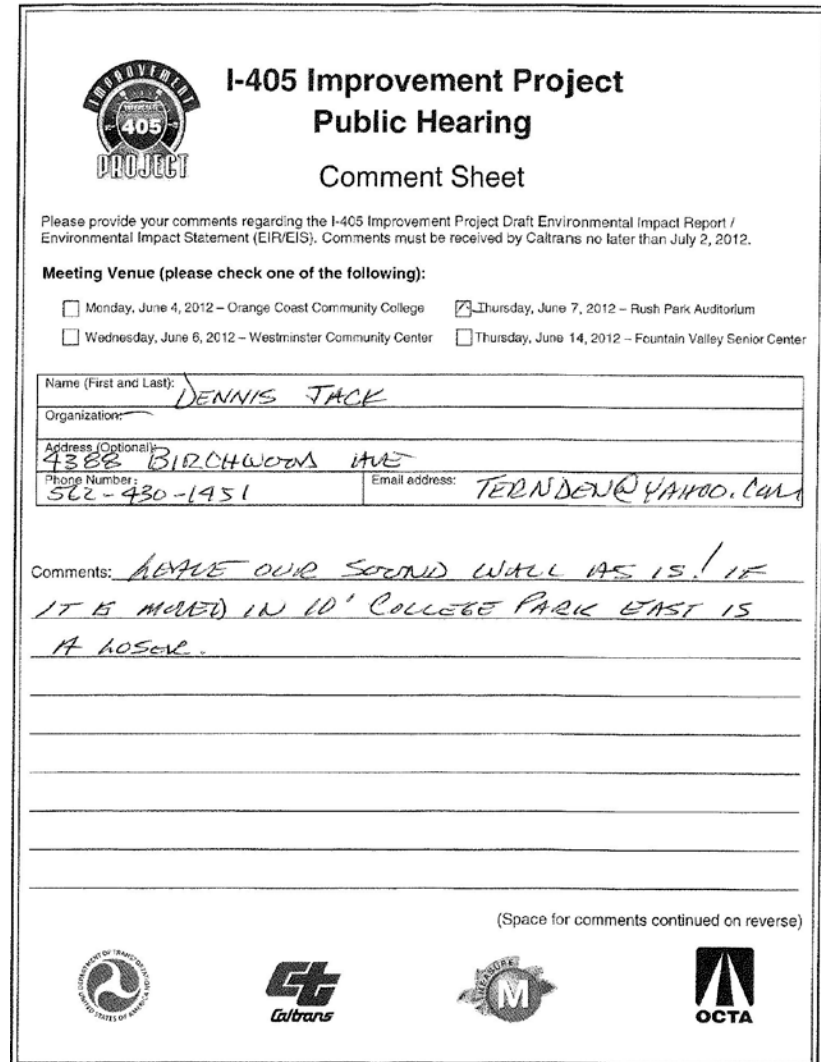 IMPROVEMENT
INTERSTATE
405
PROJECT
I-405 Improvement Project
Public Hearing
Comment Sheet
Please provide your comments regarding the I-405 Improvement Project Draft Environmental Impact Report /
Environmental Impact Statement (EIR/EIS). Comments must be received by Caltrans no later than July 2, 2012.
Meeting Venue (please check one of the following):
Monday, June 4, 2012 – Orange Coast Community College
Thursday, June 7, 2012 – Rush Park Auditorium
Wednesday, June 6, 2012 – Westminster Community Center
Thursday, June 14, 2012 – Fountain Valley Senior Center
Name (First and Last): DENNIS JACK
Organization:
Address (Optional): 4388 BIRCHWOOD AVE
Phone Number: 562-430-1451
Email address: TERNDEN@YAHOO.COM
Comments: LEAVE OUR SOUND WALL AS IS! IF
IT IS MOVED IN 10' COLLEGE PARK EAST IS
A LOSER.
(Space for comments continued on reverse)
DEPARTMENT OF TRANSPORTATION
UNITED STATES OF AMERICA
Ct
Caltrans
MEASURE
M
OCTA